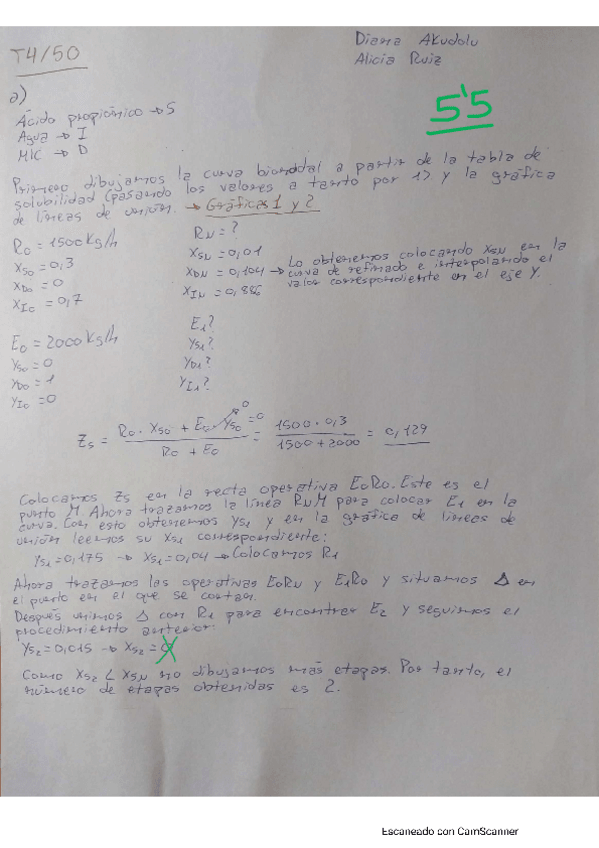 T4/50
Diana Akudolu
Alicia Ruiz
5'5
a)
Ácido propiónico → S
Agua → I
MIC → D
Primero dibujamos la curva binodal a partir de la tabla de
solubilidad (pasando los valores a tanto por 1) y la gráfica
de líneas de unión. → Gráficas 1 y 2
R0 = 1500 Kg/h
XS0 = 0,3
XD0 = 0
XI0 = 0,7
RN = ?
XSN = 0,01
XDN = 0,104 → Lo obtenemos colocando XSN en la
curva de refinado e interpolando el
valor correspondiente en el eje Y.
XIN = 0,886
E0 = 2000 Kg/h
YS0 = 0
YD0 = 1
YI0 = 0
E1?
YS1?
YD1?
YI1?
ZS = (R0 · XS0 + E0 · YS0) / (R0 + E0) = (1500 · 0,3) / (1500 + 2000) = 0,129
0
=0
Colocamos ZS en la recta operativa E0R0. Este es el
punto M. Ahora trazamos la línea RNM para colocar E1 en la
curva. Con esto obtenemos YS1 y en la gráfica de líneas de
unión leemos su XS1 correspondiente:
YS1 = 0,175 → XS1 = 0,04 → Colocamos R1
Ahora trazamos las operativas E0RN y E1R0 y situamos Δ en
el punto en el que se cortan.
Después unimos Δ con R1 para encontrar E2 y seguimos el
procedimiento anterior:
YS2 = 0,015 → XS2 = 0
Como XS2 < XSN no dibujamos más etapas. Por tanto, el
número de etapas obtenidas es 2.
Escaneado con CamScanner